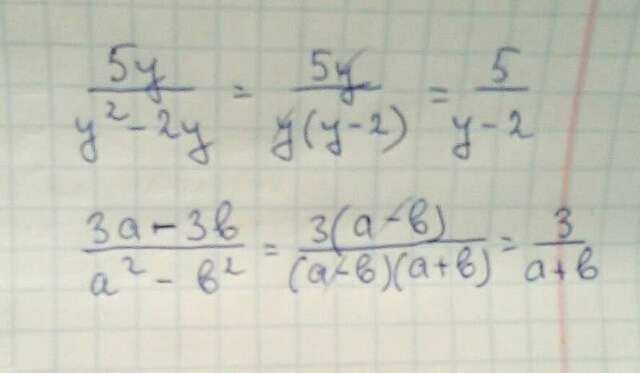 5y/(y² - 2y) = 5y/(y(y-2)) = 5/(y-2)
(3a - 3b)/(a² - b²) = 3(a-b)/((a-b)(a+b)) = 3/(a+b)